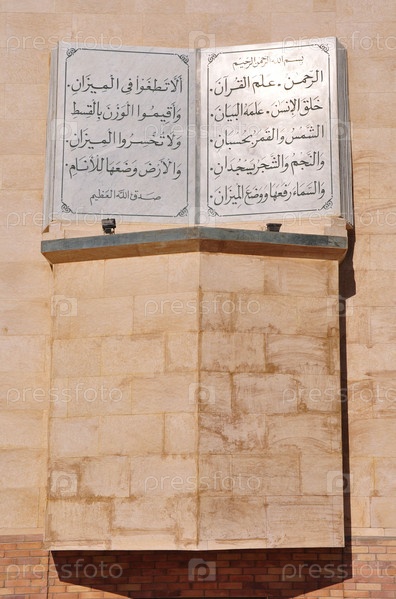 بسم الله الرحمن الرحيم
الرحمن . علم القرآن .
خلق الإنسن . علمه البيان .
الشمس والقمر بحسبان .
والنجم والشجر يسجدان .
والسماء رفعها ووضع الميزان .
ألا تطغوا في الميزان .
وأقيموا الوزن بالقسط
ولا تخسروا الميزان .
والأرض وضعها للأنام .
صدق الله العظيم
pressfoto